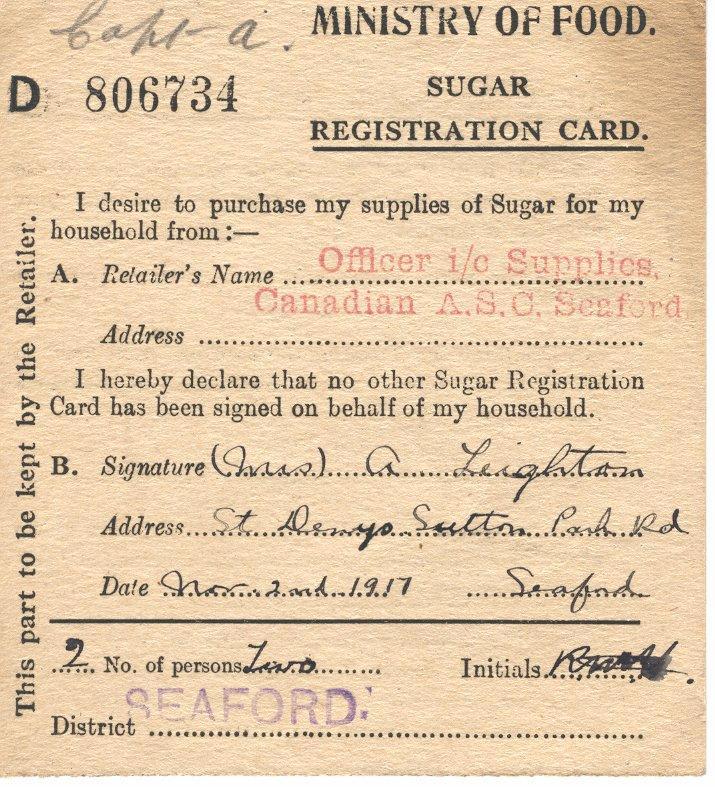 Capt A.
MINISTRY OF FOOD.
D 806734
SUGAR
REGISTRATION CARD.
I desire to purchase my supplies of Sugar for my
household from :—
A. Retailer's Name Officer i/c Supplies,
Canadian A.S.C. Seaford
Address
I hereby declare that no other Sugar Registration
Card has been signed on behalf of my household.
B. Signature (Mrs) A Leighton
Address St Denys Sutton Park Rd
Date Nov. 2nd 1917 Seaford
2 No. of persons Two Initials
SEAFORD.
District
This part to be kept by the Retailer.